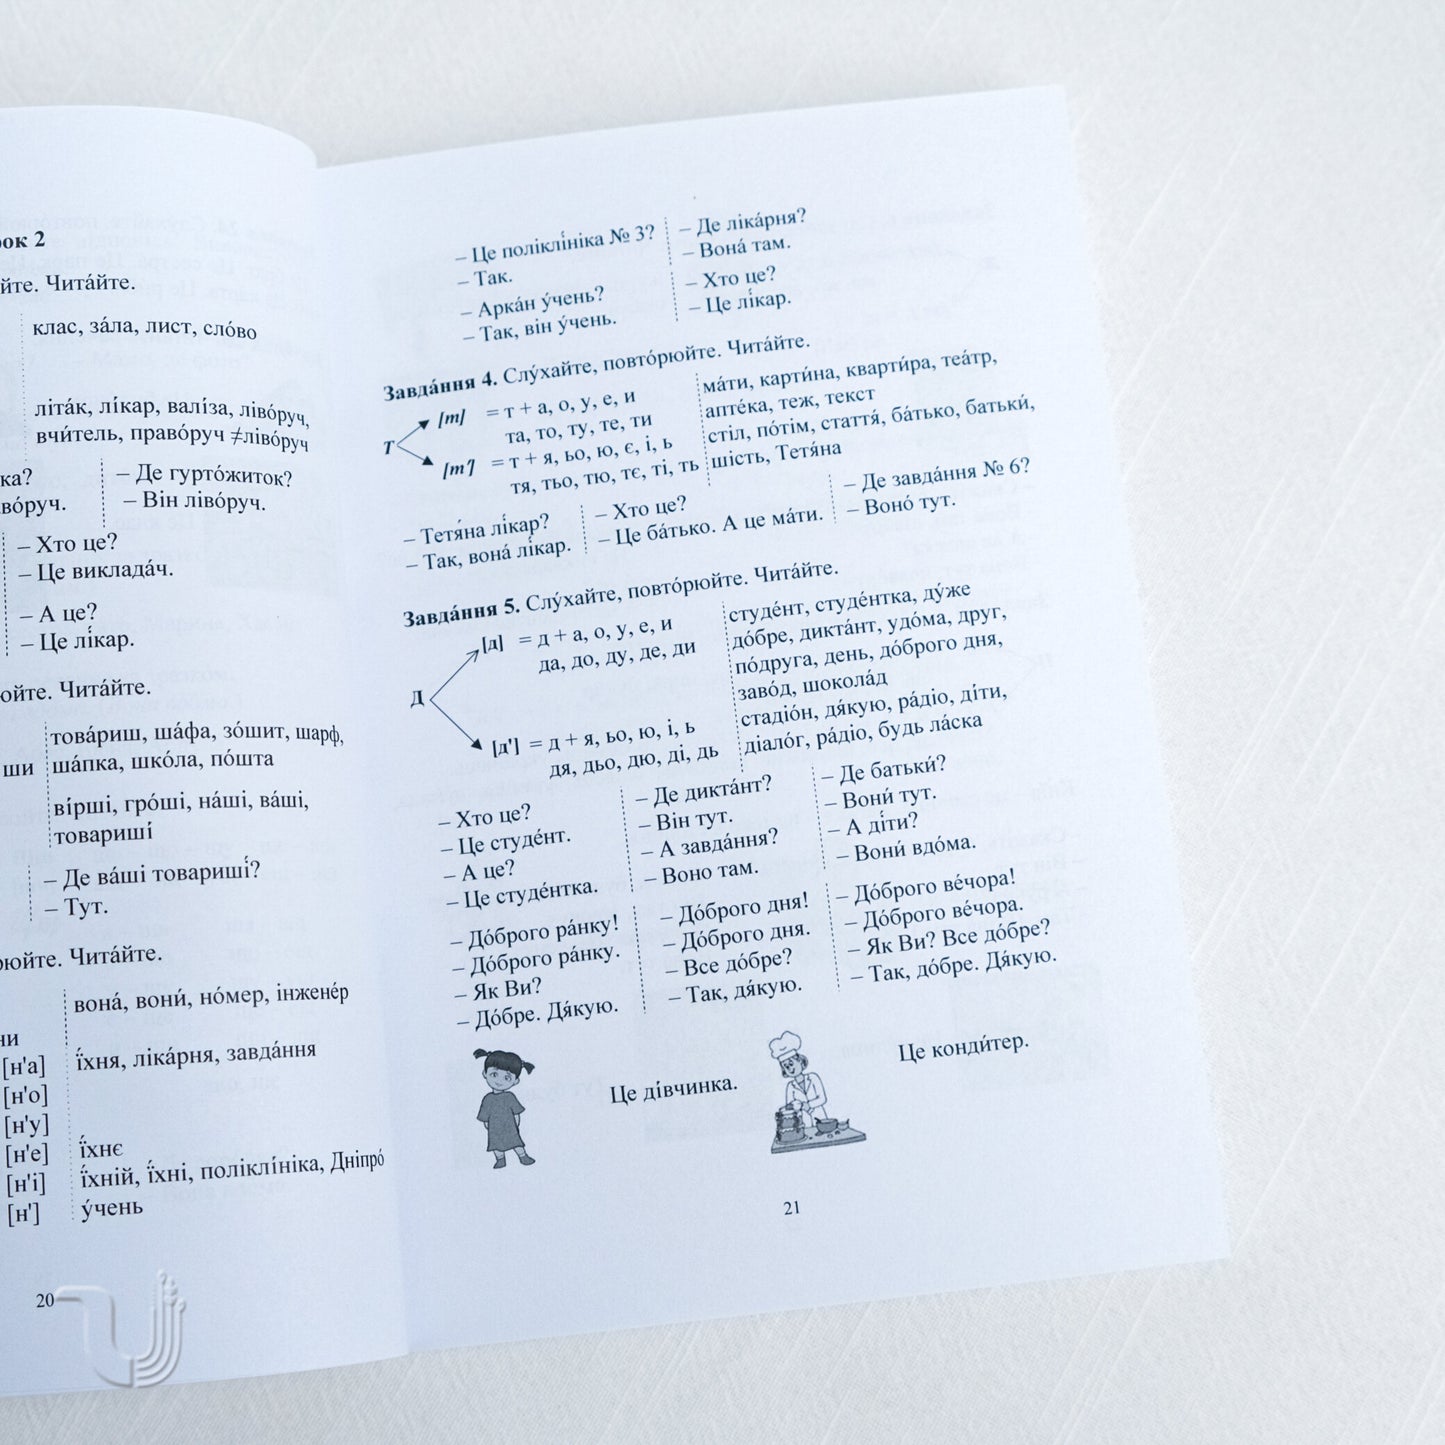 2
Чита́йте.
клас, за́ла, лист, сло́во
літа́к, лі́кар, валі́за, ліво́руч,
вчи́тель, право́руч ≠ліво́руч
– Де гурто́житок?
– Він ліво́руч.
– Хто це?
– Це виклада́ч.
– А це?
– Це лі́кар.
Чита́йте.
това́риш, ша́фа, зо́шит, шарф,
ша́пка, шко́ла, по́шта
ши
ві́рші, гро́ші, на́ші, ва́ші,
товариші́
– Де ва́ші товариші́?
– Тут.
Чита́йте.
вона́, вони́, но́мер, інжене́р
[н'а] ї́хня, ліка́рня, завда́ння
[н'о]
[н'у]
[н'е] ї́хнє
[н'і] ї́хній, ї́хні, поліклі́ніка, Дніпро́
[н'] у́чень
20
– Це поліклі́ніка № 3?
– Так.
– Арка́н у́чень?
– Так, він у́чень.
– Де ліка́рня?
– Вона́ там.
– Хто це?
– Це лі́кар.
Завда́ння 4. Слу́хайте, повто́рюйте. Чита́йте.
Т
[т] = т + а, о, у, е, и
та, то, ту, те, ти
[т'] = т + я, ьо, ю, є, і, ь
тя, тьо, тю, тє, ті, ть
ма́ти, карти́на, кварти́ра, теа́тр,
апте́ка, теж, текст
стіл, по́тім, стаття́, ба́тько, батьки́,
шість, Тетя́на
– Тетя́на лі́кар?
– Так, вона́ лі́кар.
– Хто це?
– Це ба́тько. А це ма́ти.
– Де завда́ння № 6?
– Воно́ тут.
Завда́ння 5. Слу́хайте, повто́рюйте. Чита́йте.
Д
[д] = д + а, о, у, е, и
да, до, ду, де, ди
[д'] = д + я, ьо, ю, і, ь
дя, дьо, дю, ді, дь
студе́нт, студе́нтка, ду́же
до́бре, дикта́нт, удо́ма, друг,
по́друга, день, до́брого дня,
заво́д, шокола́д
стадіо́н, дя́кую, ра́діо, ді́ти,
діало́г, ра́діо, будь ла́ска
– Хто це?
– Це студе́нт.
– А це?
– Це студе́нтка.
– Де дикта́нт?
– Він тут.
– А завда́ння?
– Воно там.
– Де батьки́?
– Вони́ тут.
– А ді́ти?
– Вони́ вдо́ма.
– До́брого ра́нку!
– До́брого ра́нку.
– Як Ви?
– До́бре. Дя́кую.
– До́брого дня!
– До́брого дня.
– Все до́бре?
– Так, дя́кую.
– До́брого ве́чора!
– До́брого ве́чора.
– Як Ви? Все до́бре?
– Так, до́бре. Дя́кую.
Це ді́вчинка.
Це конди́тер.
21